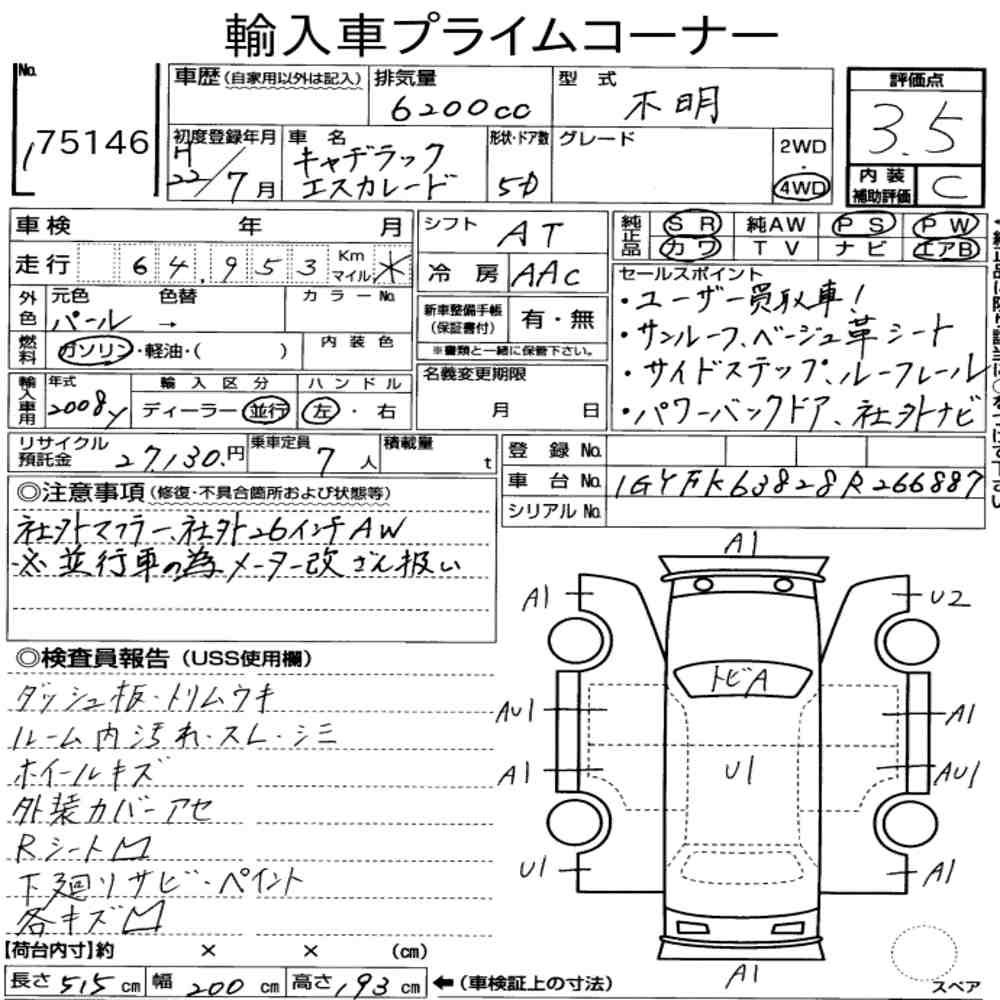 輸入車プライムコーナー
No. 175146
車歴(自家用以外は記入)
排気量 6200cc
型式 不明
評価点 3.5
初度登録年月 H22/7月
車名 キャデラック エスカレード
形状・ドア数 5D
グレード
2WD・4WD
内装補助評価 C
車検 年 月
シフト AT
純正品 SR 純AW PS PW
カワ TV ナビ エアB
走行 64,953 Km マイル
冷房 AAC
セールスポイント
・ユーザー買取車!
・サンルーフ、ベージュ革シート
・サイドステップ、ルーフレール
・パワーバックドア、社外ナビ
外色 元色 パール → 色替 カラーNo.
新車整備手帳(保証書付) 有・無
※書類と一緒に保管下さい。
燃料 ガソリン・軽油・( )
内装色
名義変更期限 月 日
輸入車用 年式 2008y
輸入区分 ディーラー・並行
ハンドル 左・右
リサイクル預託金 27,130.円
乗車定員 7人
積載量 t
登録No.
車台No. 1GYFK63828R266887
シリアルNo.
◎注意事項(修復・不具合箇所および状態等)
社外マフラー、社外26インチAW
※並行車の為メーター改ざん扱い
◎検査員報告(USS使用欄)
ダッシュ板・トリムウキ
ルーム内汚れ・スレ・シミ
ホイールキズ
外装カバーアセ
Rシート凹
下廻りサビ・ペイント
各キズ凹
A1
A1 U2
トビA
AU1 A1
A1 U1 AU1
U1 A1
A1
スペア
【荷台内寸】約 × × (cm)
長さ 515 cm 幅 200 cm 高さ 193 cm ←(車検証上の寸法)